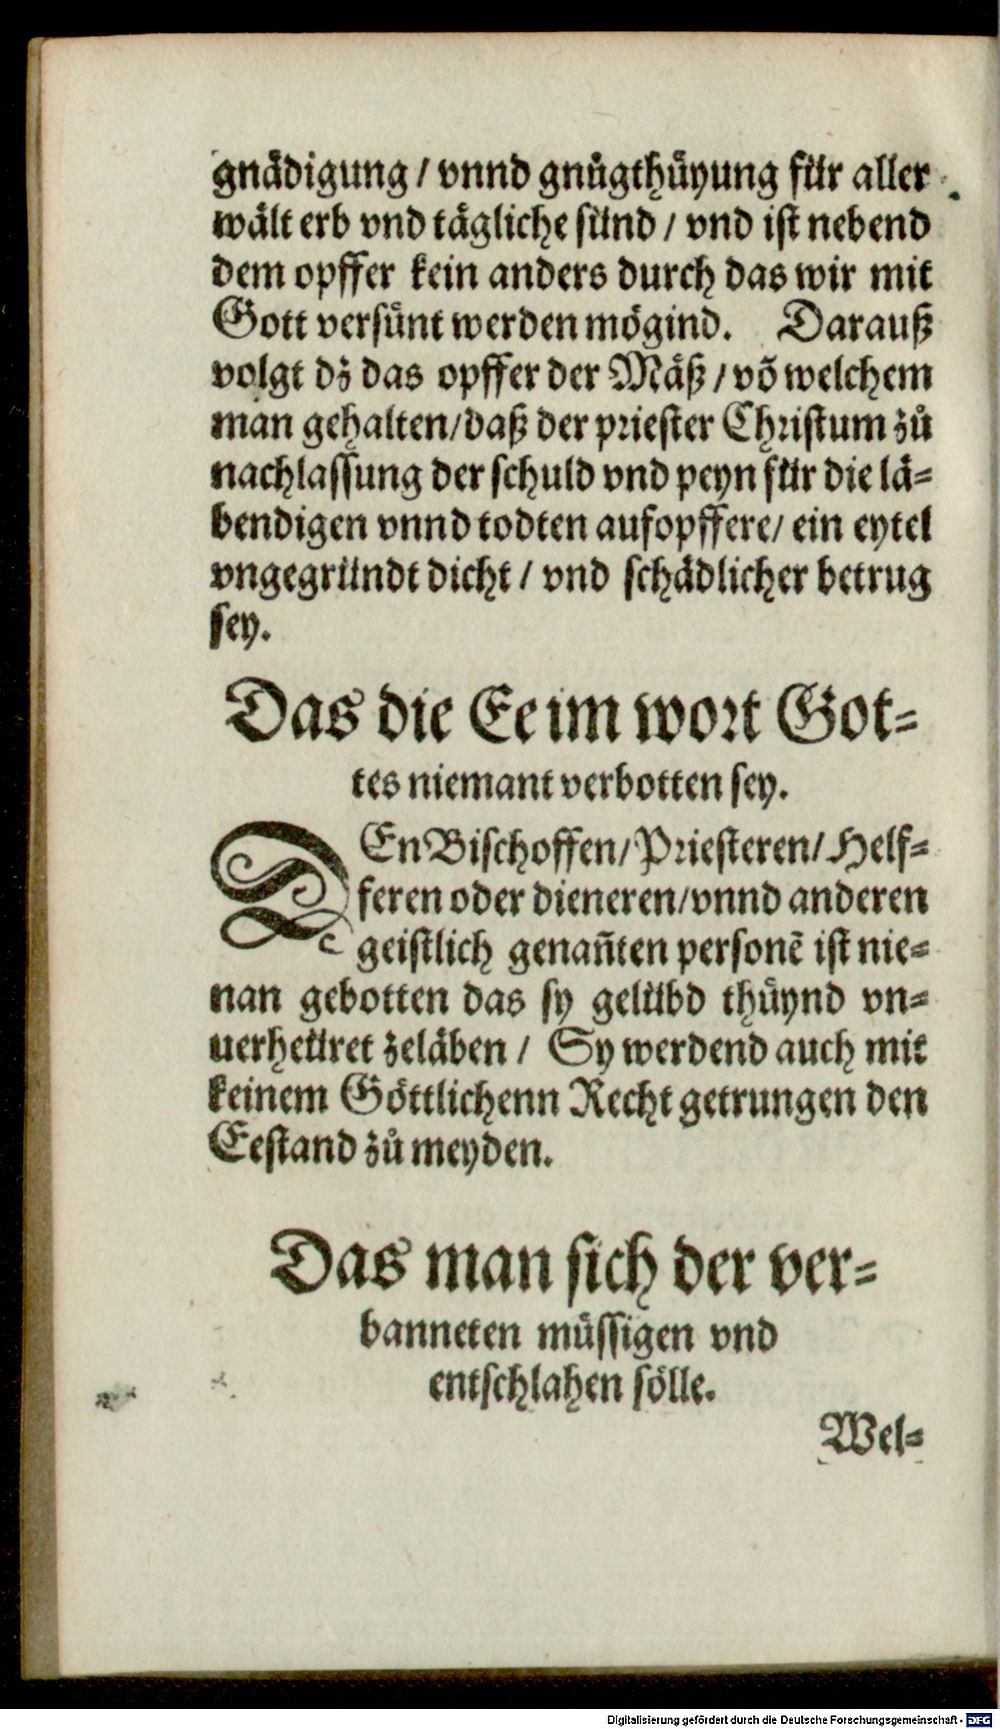 gnädigung / vnnd gnůgthüyung für aller
wält erb vnd tägliche sünd / vnd ist nebend
dem opffer kein anders durch das wir mit
Gott versünt werden mögind. Darauß
volgt dz das opffer der Mäß / võ welchem
man gehalten/daß der priester Christum zů
nachlassung der schuld vnd peyn für die lä=
bendigen vnnd todten aufopffere/ ein eytel
vngegründt dicht / vnd schädlicher betrug
sey.
Das die Ee im wort Got=
tes niemant verbotten sey.
DEn Bischoffen/Priesteren/Helf=
feren oder dieneren/vnnd anderen
geistlich genañten personẽ ist nie=
nan gebotten das sy gelübd thüynd vn=
uerheüret zeläben / Sy werdend auch mit
keinem Göttlichenn Recht getrungen den
Eestand zů meyden.
Das man sich der ver=
banneten müssigen vnd
entschlahen sölle.
Wel=
Digitalisierung gefördert durch die Deutsche Forschungsgemeinschaft - DFG